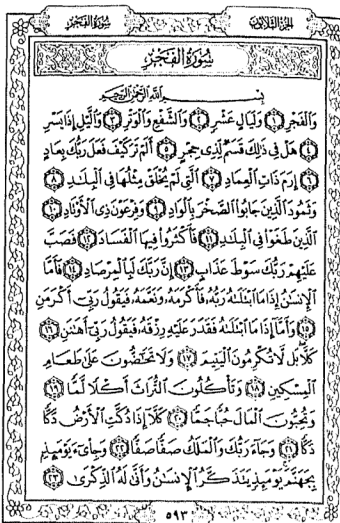 الجزء الثلاثون سورة الفجر
سُورَةُ الْفَجْرِ
بِسْمِ اللَّهِ الرَّحْمَٰنِ الرَّحِيمِ
وَالْفَجْرِ ١ وَلَيَالٍ عَشْرٍ ٢ وَالشَّفْعِ وَالْوَتْرِ ٣ وَالَّيْلِ إِذَا يَسْرِ
٤ هَلْ فِي ذَٰلِكَ قَسَمٌ لِّذِي حِجْرٍ ٥ أَلَمْ تَرَ كَيْفَ فَعَلَ رَبُّكَ بِعَادٍ
٦ إِرَمَ ذَاتِ الْعِمَادِ ٧ الَّتِي لَمْ يُخْلَقْ مِثْلُهَا فِي الْبِلَٰدِ ٨
وَثَمُودَ الَّذِينَ جَابُوا الصَّخْرَ بِالْوَادِ ٩ وَفِرْعَوْنَ ذِي الْأَوْتَادِ ١٠
الَّذِينَ طَغَوْا فِي الْبِلَٰدِ ١١ فَأَكْثَرُوا فِيهَا الْفَسَادَ ١٢ فَصَبَّ
عَلَيْهِمْ رَبُّكَ سَوْطَ عَذَابٍ ١٣ إِنَّ رَبَّكَ لَبِالْمِرْصَادِ ١٤ فَأَمَّا
الْإِنسَٰنُ إِذَا مَا ابْتَلَىٰهُ رَبُّهُ فَأَكْرَمَهُ وَنَعَّمَهُ فَيَقُولُ رَبِّي أَكْرَمَنِ
١٥ وَأَمَّا إِذَا مَا ابْتَلَىٰهُ فَقَدَرَ عَلَيْهِ رِزْقَهُ فَيَقُولُ رَبِّي أَهَٰنَنِ ١٦
كَلَّا بَل لَّا تُكْرِمُونَ الْيَتِيمَ ١٧ وَلَا تَحَٰضُّونَ عَلَىٰ طَعَامِ
الْمِسْكِينِ ١٨ وَتَأْكُلُونَ التُّرَاثَ أَكْلًا لَّمًّا ١٩
وَتُحِبُّونَ الْمَالَ حُبًّا جَمًّا ٢٠ كَلَّا إِذَا دُكَّتِ الْأَرْضُ دَكًّا
دَكًّا ٢١ وَجَاءَ رَبُّكَ وَالْمَلَكُ صَفًّا صَفًّا ٢٢ وَجِاْيءَ يَوْمَئِذٍ
بِجَهَنَّمَ يَوْمَئِذٍ يَتَذَكَّرُ الْإِنسَٰنُ وَأَنَّىٰ لَهُ الذِّكْرَىٰ ٢٣
٥٩٣